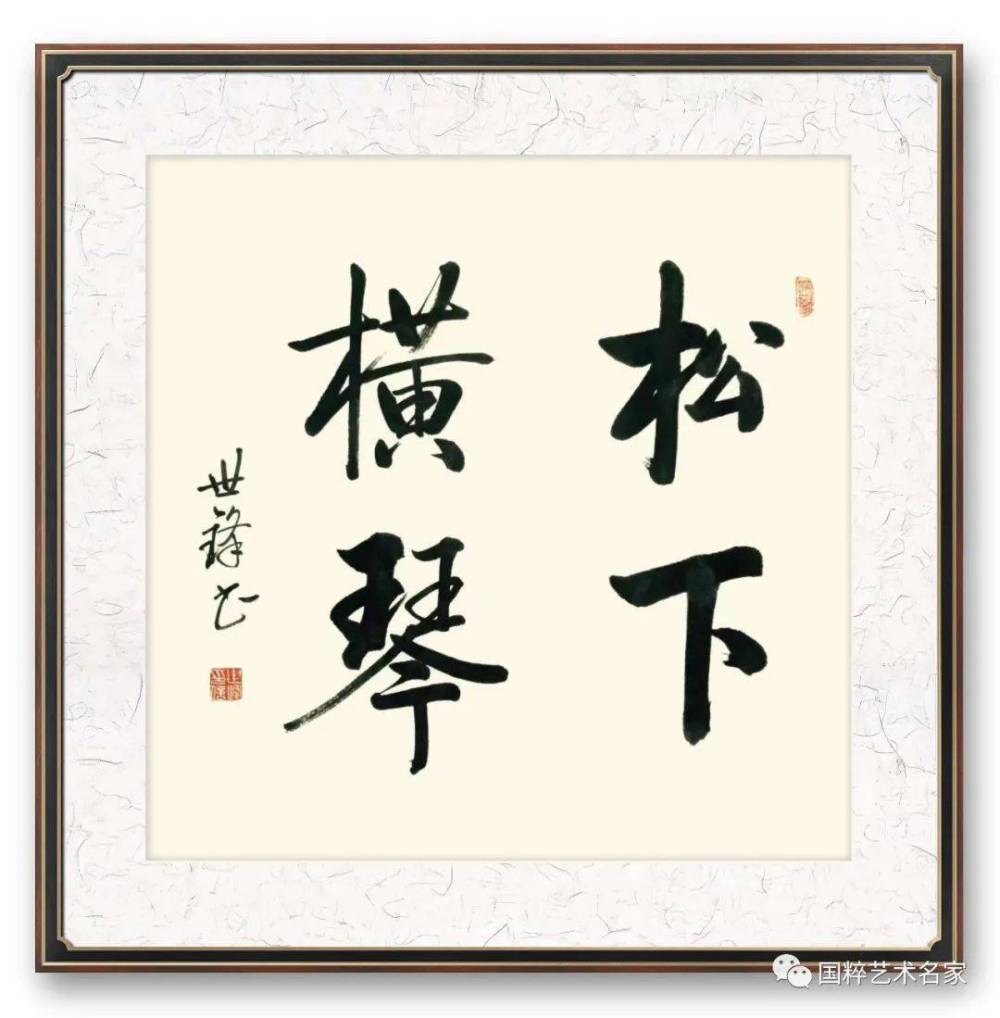 松下
橫琴
世鋒书
国粹艺术名家